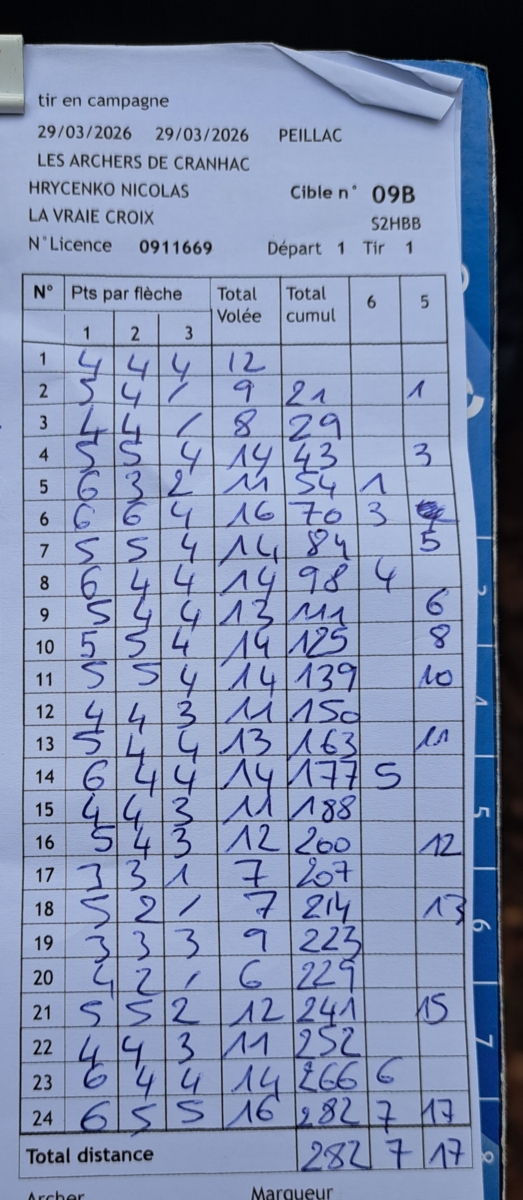 tir en campagne
29/03/2026 29/03/2026 PEILLAC
LES ARCHERS DE CRANHAC
HRYCENKO NICOLAS Cible n° 09B
LA VRAIE CROIX S2HBB
N°Licence 0911669 Départ 1 Tir 1
N° Pts par flèche Total Volée Total cumul 6 5
1 2 3
1 4 4 4 12
2 5 4 / 9 21 1
3 4 4 / 8 29
4 5 5 4 14 43 3
5 6 3 2 11 54 1
6 6 6 4 16 70 3
7 5 5 4 14 84 5
8 6 4 4 14 98 4
9 5 4 4 13 111 6
10 5 5 4 14 125 8
11 5 5 4 14 139 10
12 4 4 3 11 150
13 5 4 4 13 163 11
14 6 4 4 14 177 5
15 4 4 3 11 188
16 5 4 3 12 200 12
17 3 3 1 7 207
18 5 2 / 7 214 13
19 3 3 3 9 223
20 4 2 / 6 229
21 5 5 2 12 241 15
22 4 4 3 11 252
23 6 4 4 14 266 6
24 6 5 5 16 282 7 17
Total distance 282 7 17
Archer Marqueur
5
6
7
8